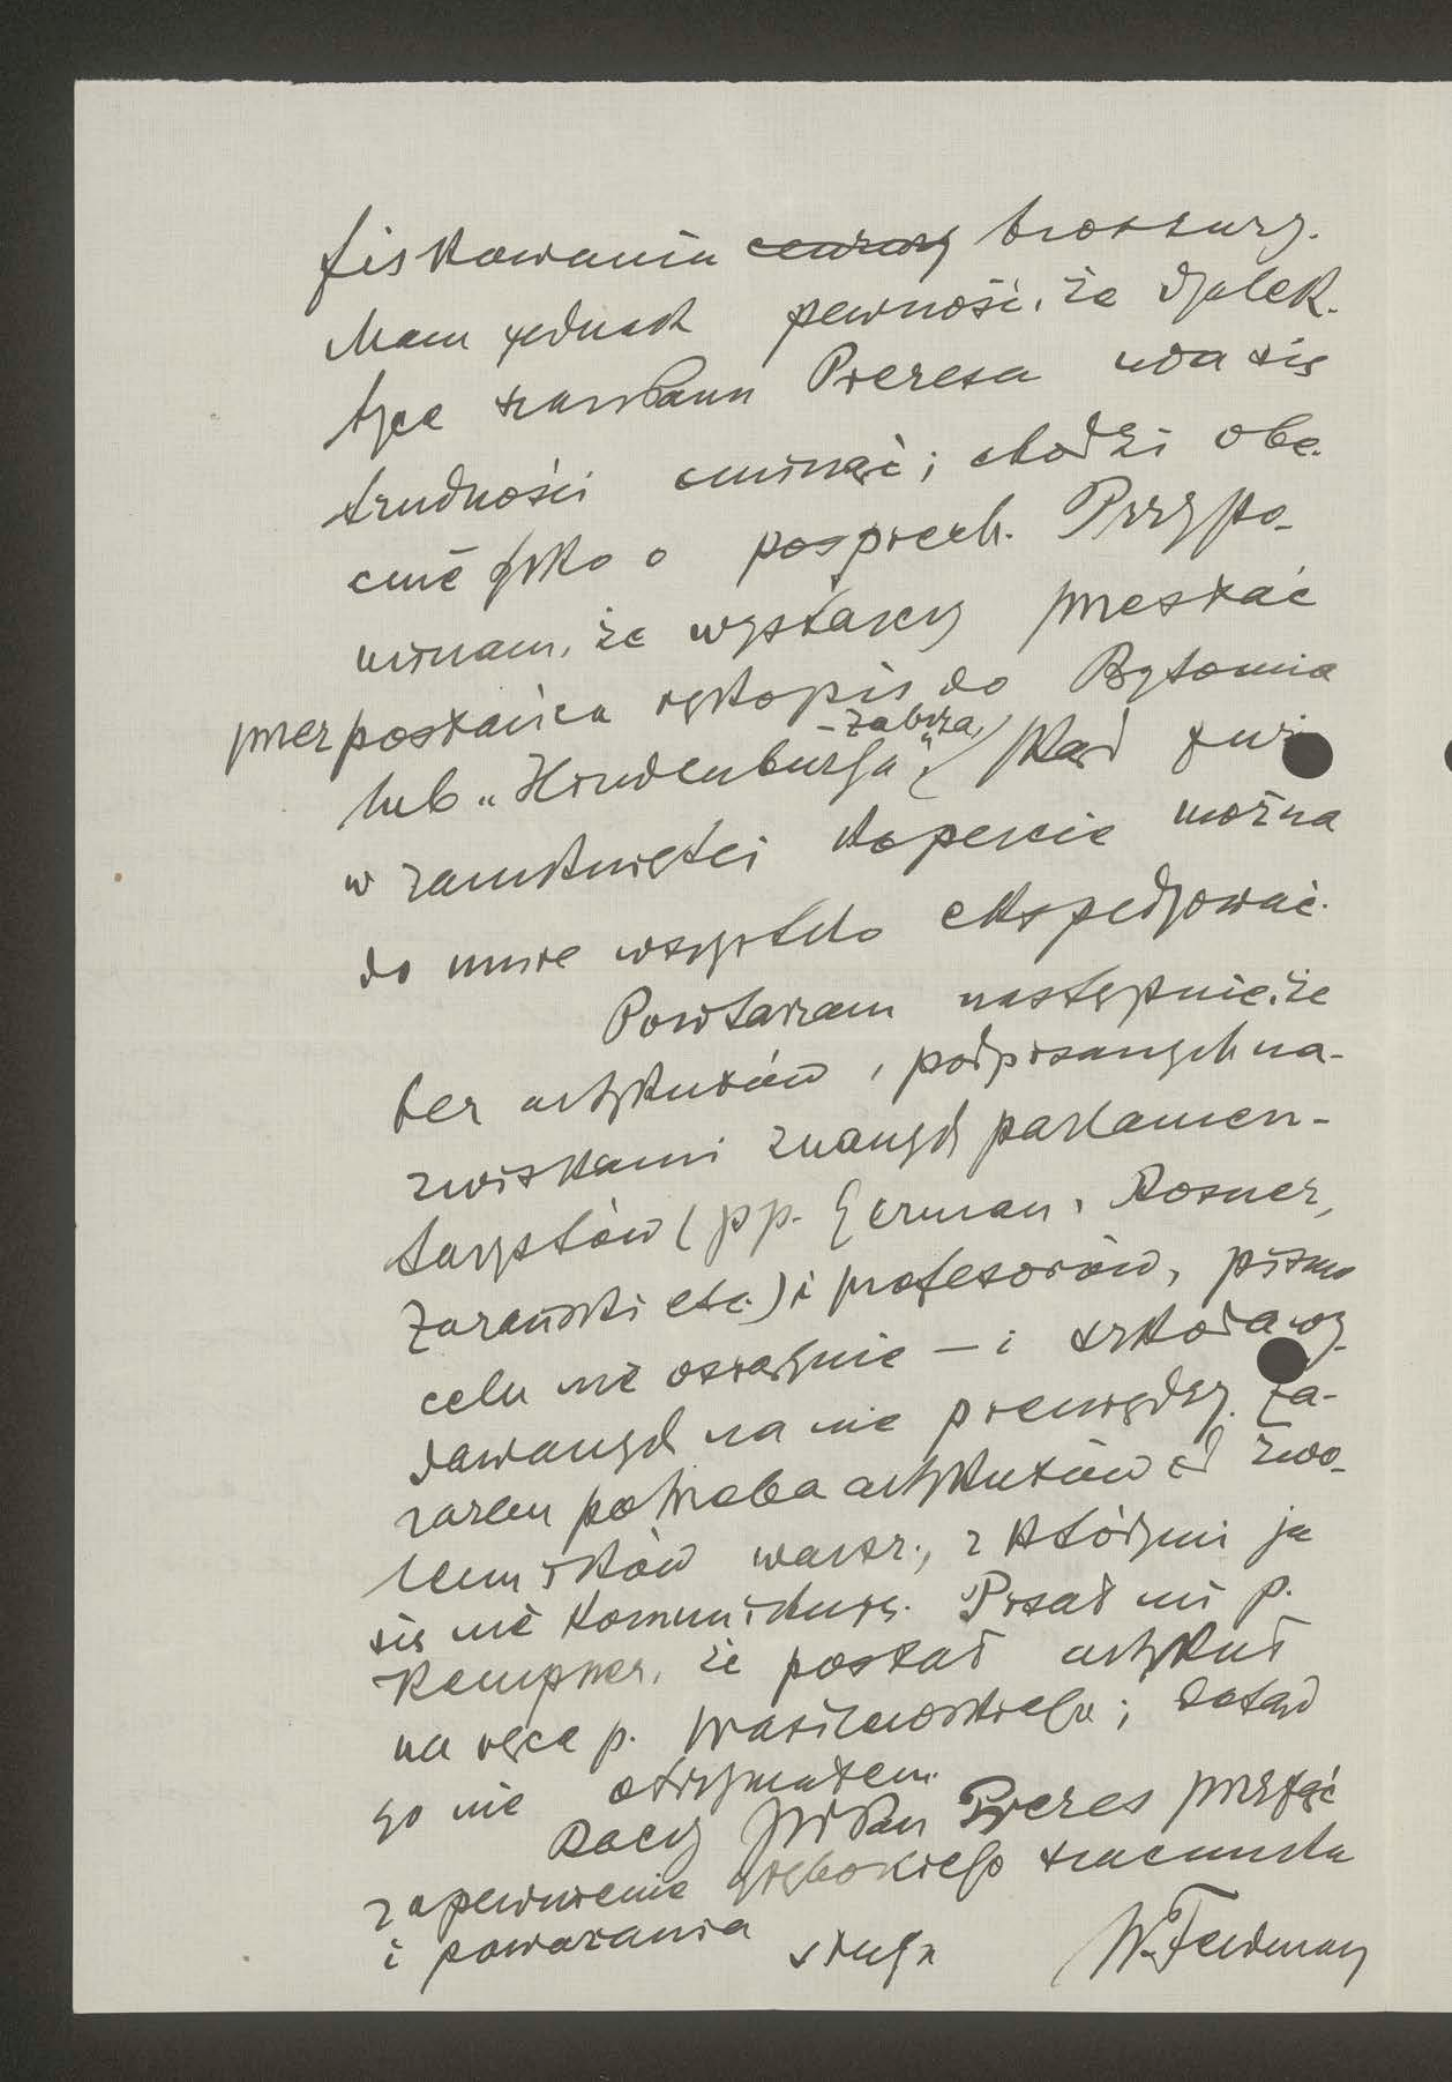 fiskowania cenzury broszury.
Mam jednak pewność, że dyalek-
tyce szan Pana Prezesa uda się
trudności ominąć; chodzi obe-
cnie tylko o pospiech. Przypo-
minam, że wystarczy przesłać
przez posłańca rękopis do Bytomia
lub „Hindenburga” - Zabrza, skąd już
w zamkniętej kopercie można
do mnie wszystko ekspedyować.
Powtarzam następnie, że
bez artykułów, podpisanych na-
zwiskami znanych parlamen-
tarystów (pp. German, Rosner,
Zarański etc.) i profesorów, pismo
celu nie osiągnie — i szkoda wy-
dawanych na nie pieniędzy. Za-
razem potrzeba artykułów od zwo-
lenników warsz., z którymi ja
się nie komunikuję. Pisał mi p.
Kempner, że posłał artykuł
na ręce p. Wasilewskiego; dotąd
go nie otrzymałem.
Raczy JW Pan Prezes przyjąć
zapewnienie głębokiego szacunku
i poważania
sługa W. Feldman